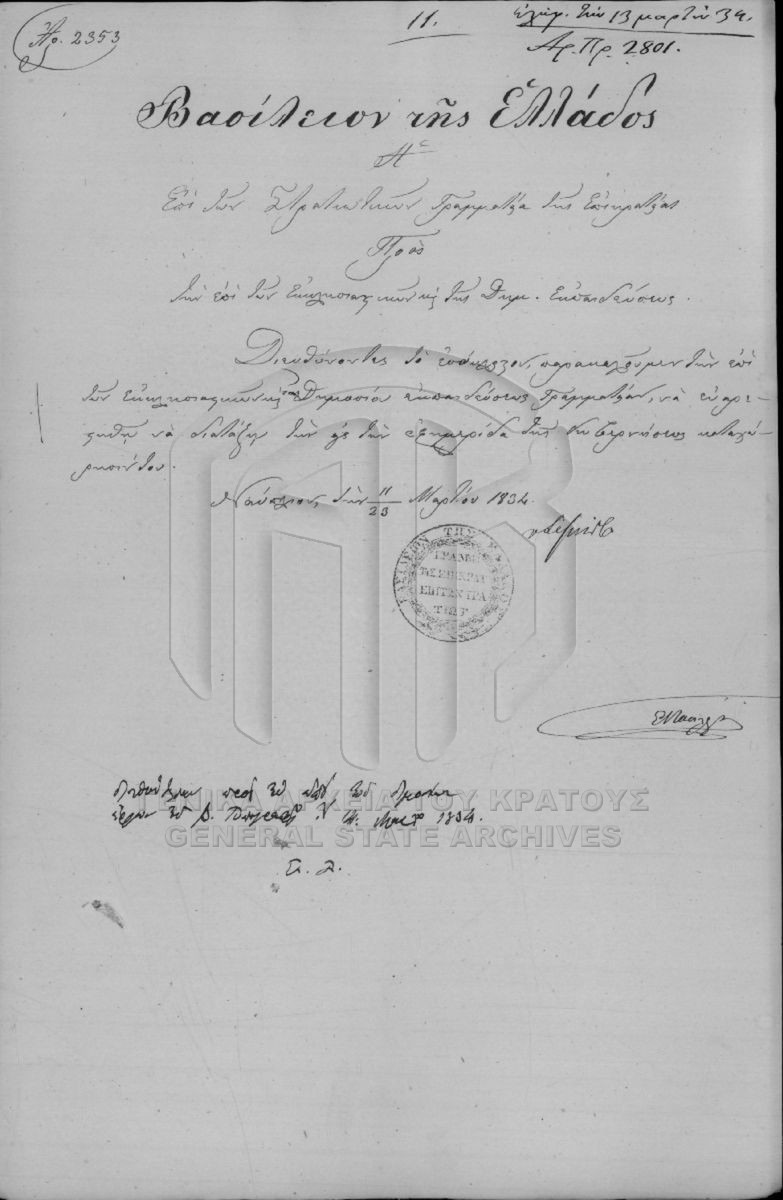 Ἀρ. 2353
11.
ἐλήφ. τὴν 13 μαρτίου 34.
Ἀρ. Πρ. 2801.
Βασίλειον τῆς Ἑλλάδος
Ἡ
Ἐπὶ τῶν Στρατιωτικῶν Γραμματεία τῆς Ἐπικρατείας
Πρὸς
τὴν ἐπὶ τῶν Ἐκκλησιαστικῶν κ τῆς Δημ. Ἐκπαιδεύσεως.
Διευθύνοντες τὸ ἐσώκλειον, παρακαλοῦμεν τὴν ἐπὶ
τῶν ἐκκλησιαστικῶν κ τῆς Δημοσίου ἐκπαιδεύσεως Γραμματείαν, νὰ εὐαρε-
στηθῇ νὰ διατάξῃ τὴν εἰς τὴν ἐφημερίδα τῆς Κυβερνήσεως καταχώ-
ρησίν του.
Ναύπλιον, τὴν 11/23 Μαρτίου 1834.
ΒΑΣΙΛΕΙΟΝ ΤΗΣ ΕΛΛΑΔΟΣ
ΓΡΑΜΜ
ΤΗΣ ΕΠΙΚΡΑΤ
ΕΠΙ ΤΩΝ ΣΤΡΑ
ΤΙΩΤ
Μαρτ 1834.
ΓΕΝΙΚΑ ΑΡΧΕΙΑ ΤΟΥ ΚΡΑΤΟΥΣ
GENERAL STATE ARCHIVES